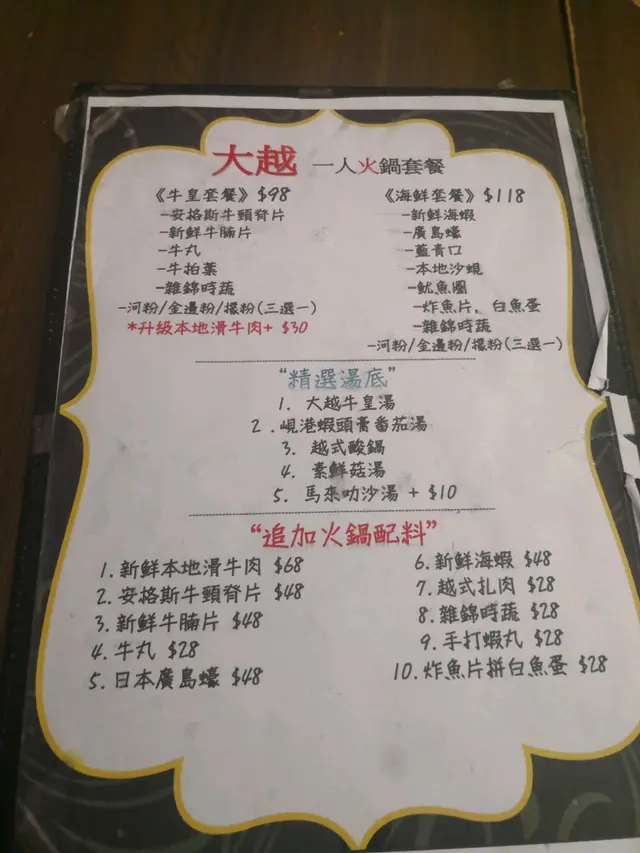 大越 一人火鍋套餐
《牛皇套餐》$98
-安格斯牛頸脊片
-新鮮牛腩片
-牛丸
-牛柏葉
-雜錦時蔬
-河粉/金邊粉/檬粉(三選一)
*升級本地滑牛肉+ $30
《海鮮套餐》$118
-新鮮海蝦
-廣島蠔
-藍青口
-本地沙蜆
-魷魚圈
-炸魚片，白魚蛋
-雜錦時蔬
-河粉/金邊粉/檬粉(三選一)
“精選湯底”
1. 大越牛皇湯
2．峴港蝦頭膏番茄湯
3. 越式酸鍋
4. 素鮮菇湯
5. 馬來叻沙湯 + $10
“追加火鍋配料”
1. 新鮮本地滑牛肉 $68
2. 安格斯牛頸脊片 $48
3. 新鮮牛腩片 $48
4. 牛丸 $28
5. 日本廣島蠔 $48
6. 新鮮海蝦 $48
7. 越式扎肉 $28
8. 雜錦時蔬 $28
9. 手打蝦丸 $28
10. 炸魚片拼白魚蛋 $28